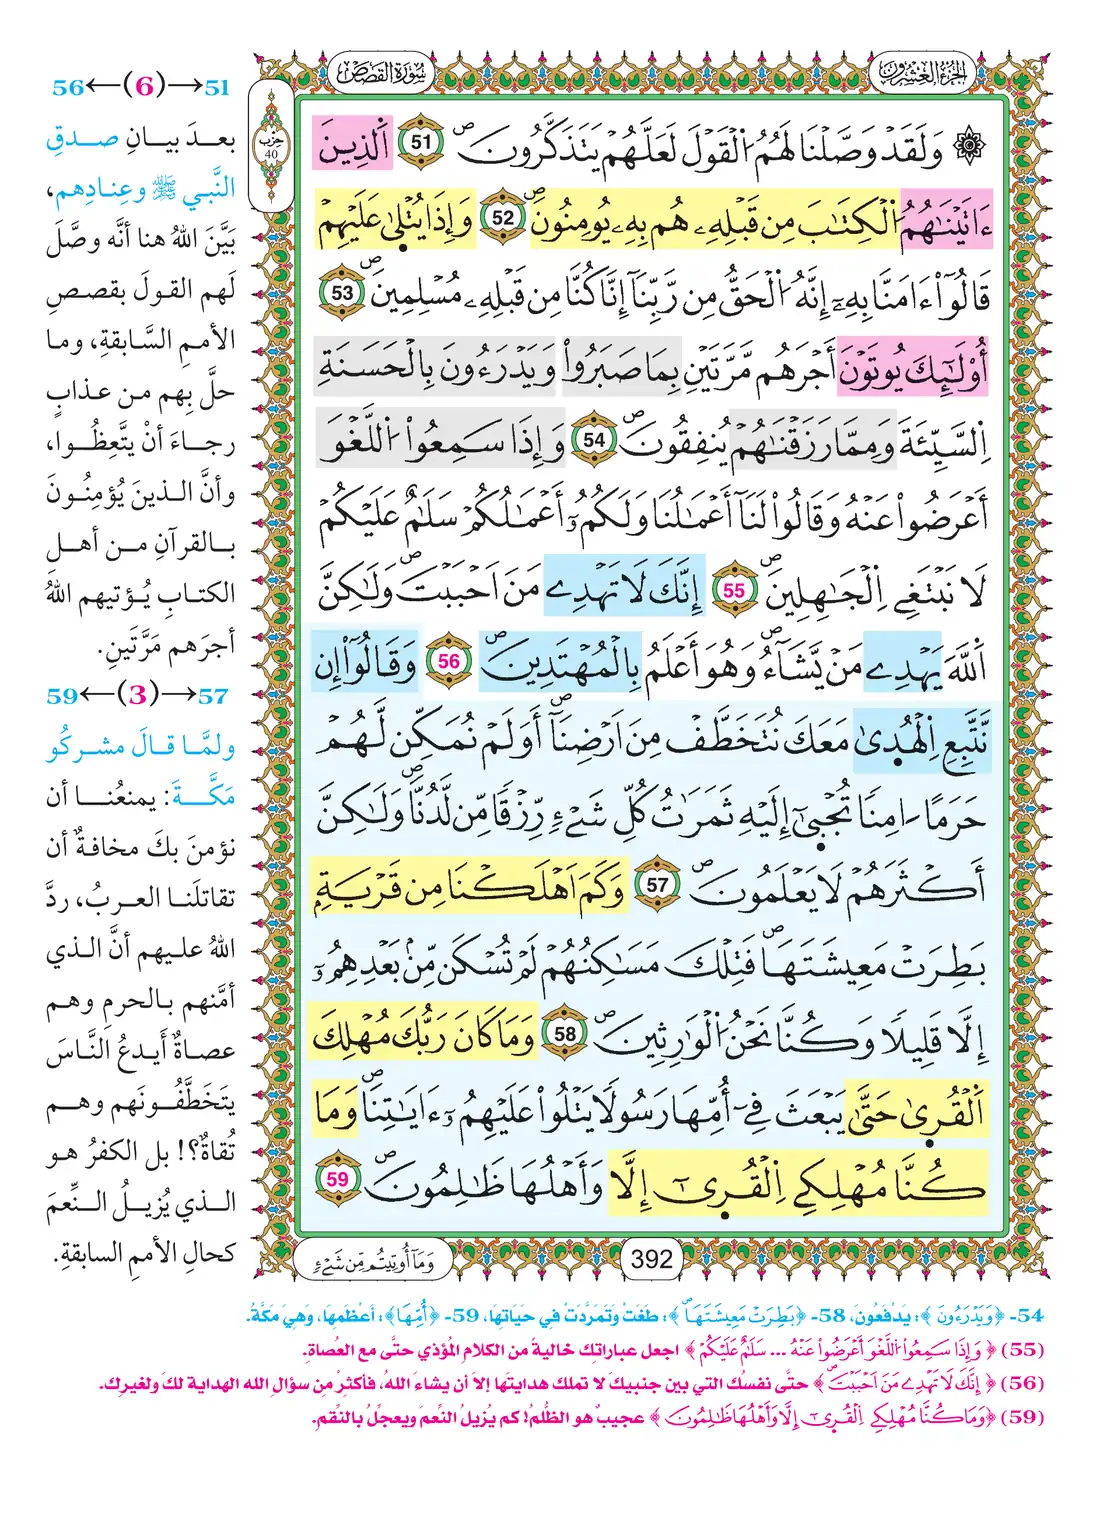 الجزء العشرون
سورة القصص
حزب
40
۞ وَلَقَدْ وَصَّلْنَا لَهُمُ اُ۬لْقَوْلَ لَعَلَّهُمْ يَتَذَكَّرُونَۖ 51 اَ۬لذِينَ
ءَاتَيْنَٰهُمُ اُ۬لْكِتَٰبَ مِن قَبْلِهِۦ هُم بِهِۦ يُومِنُونَۖ 52 وَإِذَا يُتْل۪ىٰ عَلَيْهِمْ
قَالُوٓاْ ءَامَنَّا بِهِۦٓ إِنَّهُ اُ۬لْحَقُّ مِن رَّبِّنَآ إِنَّا كُنَّا مِن قَبْلِهِۦ مُسْلِمِينَۖ 53
أُوْلَٰٓئِكَ يُوتَوْنَ أَجْرَهُم مَّرَّتَيْنِ بِمَا صَبَرُواْ وَيَدْرَءُونَ بِالْحَسَنَةِ
اِ۬لسَّيِّئَةَ وَمِمَّا رَزَقْنَٰهُمْ يُنفِقُونَۖ 54 وَإِذَا سَمِعُواْ اُ۬للَّغْوَ
أَعْرَضُواْ عَنْهُ وَقَالُواْ لَنَآ أَعْمَٰلُنَا وَلَكُمُۥٓ أَعْمَٰلُكُمْ سَلَٰمٌ عَلَيْكُمْ
لَا نَبْتَغِي اِ۬لْجَٰهِلِينَۖ 55 إِنَّكَ لَا تَهْدِے مَنَ اَحْبَبْتَۖ وَلَٰكِنَّ
اَ۬للَّهَ يَهْدِے مَنْ يَّشَآءُۖ وَهُوَ أَعْلَمُ بِالْمُهْتَدِينَۖ 56 وَقَالُوٓاْ إِن
نَّتَّبِعِ اِ۬لْهُد۪ىٰ مَعَكَ نُتَخَطَّفْ مِنَ اَرْضِنَآۖ أَوَلَمْ نُمَكِّن لَّهُمْ
حَرَماً اٰمِناٗ تُجْب۪ىٰٓ إِلَيْهِ ثَمَرَٰتُ كُلِّ شَےْءٖ رِّزْقاٗ مِّن لَّدُنَّاۖ وَلَٰكِنَّ
أَكْثَرَهُمْ لَا يَعْلَمُونَۖ 57 وَكَمَ اَهْلَكْنَا مِن قَرْيَةِۢ
بَطِرَتْ مَعِيشَتَهَاۖ فَتِلْكَ مَسَٰكِنُهُمْ لَمْ تُسْكَن مِّنۢ بَعْدِهِمُۥٓ
إِلَّا قَلِيلاٗ وَكُنَّا نَحْنُ اُ۬لْوَٰرِثِينَۖ 58 وَمَا كَانَ رَبُّكَ مُهْلِكَ
اَ۬لْقُر۪ىٰ حَتَّىٰ يَبْعَثَ فِےٓ أُمِّهَا رَسُولاٗ يَتْلُواْ عَلَيْهِمُۥٓ ءَايَٰتِنَاۖ وَمَا
كُنَّا مُهْلِكِے اِ۬لْقُر۪ىٰٓ إِلَّا وَأَهْلُهَا ظَٰلِمُونَۖ 59
392
وَمَآ أُوتِيتُم مِّن شَےْءٖ
51→(6)←56
بعدَ بيانِ صدقِ
النَّبي ﷺ وعِنادِهم،
بَيَّنَ اللهُ هنا أنَّه وصَّلَ
لَهم القولَ بقصصِ
الأممِ السَّابقةِ، وما
حلَّ بِهم من عذابٍ
رجاءَ أنْ يتَّعِظُوا،
وأنَّ الذينَ يُؤمِنُونَ
بالقرآنِ من أهلِ
الكتابِ يُؤتيهم اللهُ
أجرَهم مَرَّتَينِ.
57→(3)←59
ولمَّا قالَ مشركُو
مَكَّةَ: يمنعُنا أن
نؤمنَ بكَ مخافةُ أن
تقاتلَنا العربُ، ردَّ
اللهُ عليهم أنَّ الذي
أمَّنهم بالحرمِ وهم
عصاةٌ أيدعُ النَّاسَ
يتَخَطَّفُونَهم وهم
تُقاةٌ؟! بل الكفرُ هو
الذي يُزيلُ النِّعمَ
كحالِ الأممِ السابقةِ.
54- ﴿وَيَدْرَءُونَ﴾: يَدْفَعُونَ، 58- ﴿بَطِرَتْ مَعِيشَتَهَاۖ﴾: طَغَتْ وَتَمَرَّدَتْ فِي حَيَاتِهَا، 59- ﴿أُمِّهَا﴾: أَعْظَمِهَا، وَهِيَ مَكَّةُ.
(55) ﴿وَإِذَا سَمِعُواْ اُ۬للَّغْوَ أَعْرَضُواْ عَنْهُ ... سَلَٰمٌ عَلَيْكُمْ﴾ اجعل عباراتِك خاليةً من الكلامِ المُؤذي حتَّى مع العُصاةِ.
(56) ﴿إِنَّكَ لَا تَهْدِے مَنَ اَحْبَبْتَۖ﴾ حتَّى نفسُك التي بين جنبيكَ لا تملك هدايتَها إلا أن يشاءَ اللهُ، فأكثِرْ مِن سؤالِ الله الهدايةَ لكَ ولغيرِك.
(59) ﴿وَمَا كُنَّا مُهْلِكِے اِ۬لْقُر۪ىٰٓ إِلَّا وَأَهْلُهَا ظَٰلِمُونَۖ﴾ عجيبٌ هو الظُّلمُ! كم يُزيلُ النِّعمَ ويعجلُ بالنِّقمِ.